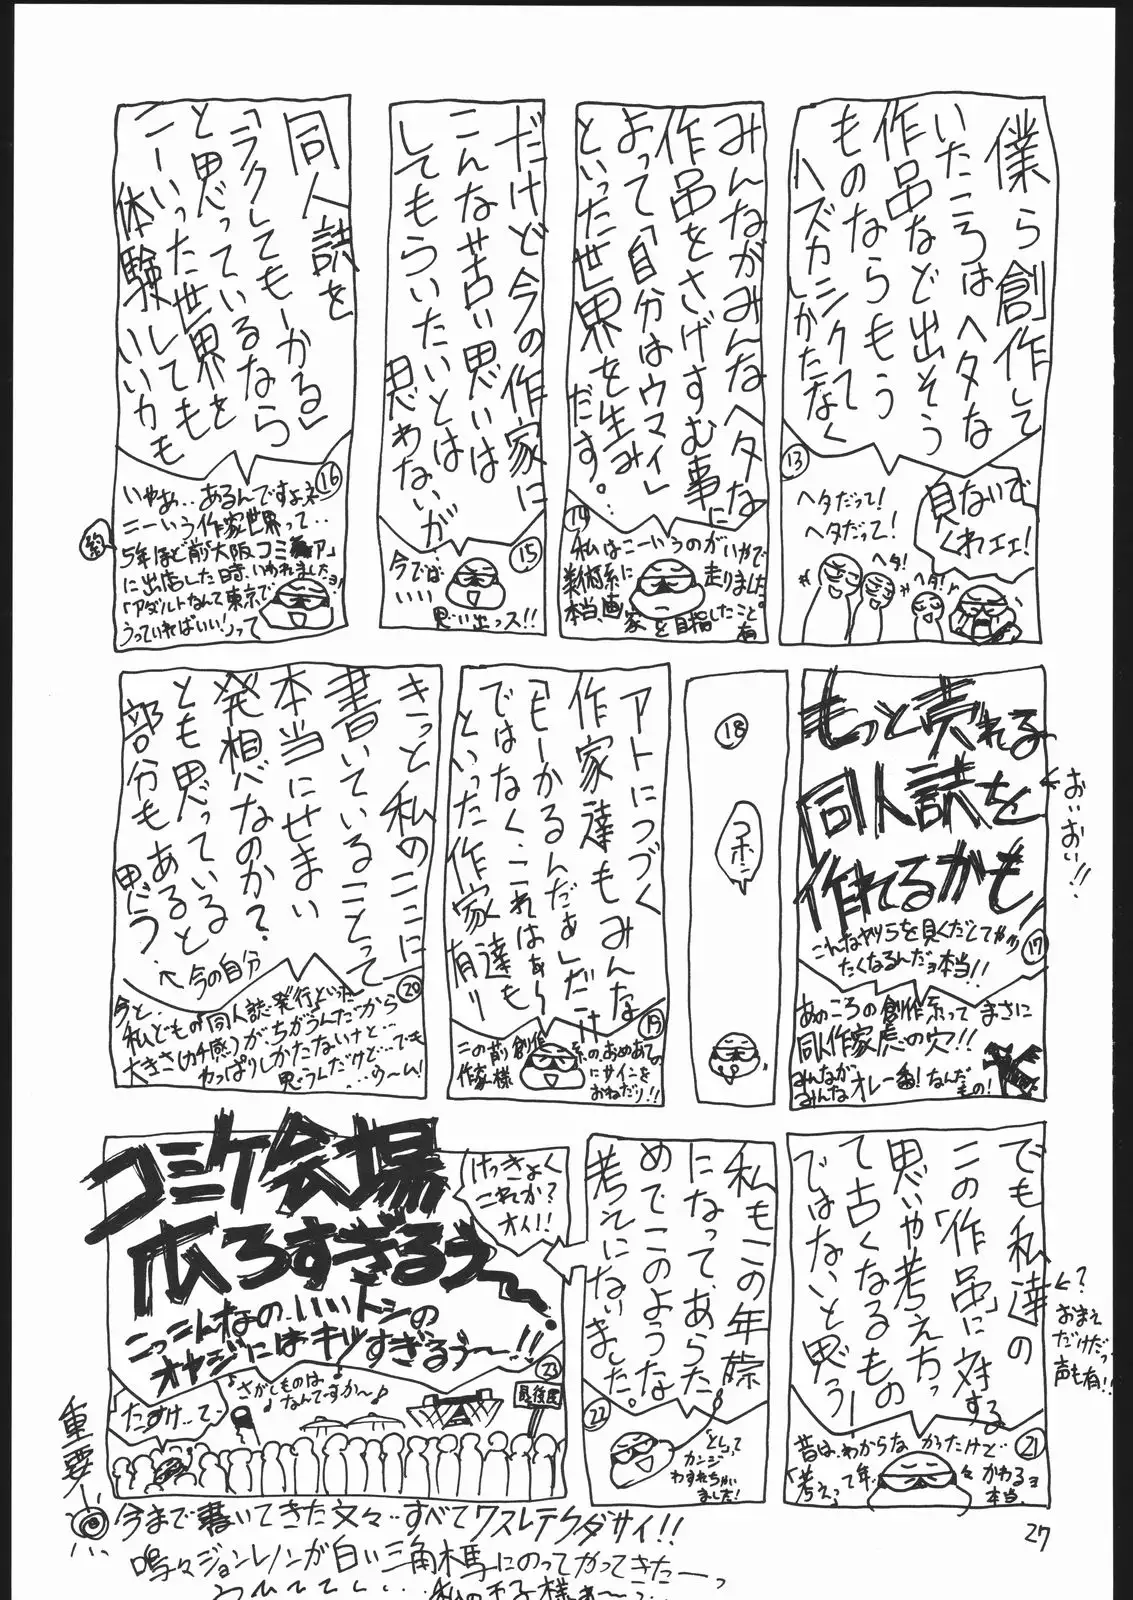 僕ら創作して
いたころはヘタな
作品など出そう
ものならもう
ハズカシクて
しかたなく
13
ヘタだって!
ヘタだって!
ヘタ!
ヘタ!
見ないで
くれェェ!
みんながみんなヘタな
作品をさげすむ事に
よって「自分はウマイ」
といった世界を生み
だす。
14
私はこーいうのがいやで
美術系に走りました
本当、画家を目指したこと有
だけど今の作家に
こんな苦い思いは
してもらいたいとは
思わないが
15
今では…
いいい
思い出っス!!
同人誌を
「ラクしてもーかる」
と思っているなら
こーいった世界を
体験しても
いいカモ
16
いやぁ‥あるんですよネ
こーいう作家世界って‥
約
5年ほど前「大阪コミケア」
に出店した時、いわれましたョ!
「アダルトなんて東京で
うっていればいい!」って
もっと売れる
同人誌を
作れるかも!
おいおい!!
17
こんなヤツらを見くだしてやり
たくなるんだョ本当!!
あのころの創作系ってまさに
同人作家虎の穴!!
みんなが
みんなオレ一番!なんだ
もの!
18
コホン
アトにつづく
作家達もみんな
「もーかるんだぁ」だけ
ではなく、これはぁ~
といった作家達も
有り
19
この前創作系のおめあての
作家様にサインを
おねだり!!
きっと私のここに
書いていることって
本当にせまい
発相なのか?
とも思っていると
部分もあると
思う。
←今の自分
20
今と、
私どもの「同人誌発行」といった
大きさ(カチ感)が、ちがうんだから
やっぱりしかたないけど…でも
思うんだけど…
…ウ~ム!
でも私達の
この「作品」に対する
思いや考え方って
古くなるもの
ではないと思う
←?
おまえ
だけだっ
声も有!!
21
昔は、わからなかったけど
「考え」って年々かわるョ
本当。
私もこの年齢
になって、あらた
めてこのような
考えになりました。
22
「とし」って
カンジ
わすれちゃい
ました!
けっきょく
これか?
オイ!!
コミケ会場
広ろすぎるぅ~
こっこんなの‥いいトシの
オヤジにはキツすぎるぅ~!!
23
♪さがしものは
なんですか~♪
たすけ…て…
最後尾
重要
今まで書いてきた文々‥すべてワスレテクダサイ!!
鳴々ジョンレノンが白い三角木馬にのってやってきたーっ
27